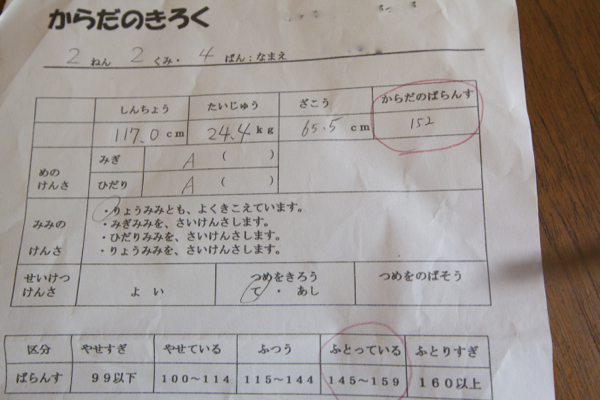 からだのきろく
2 ねん 2 くみ・ 4 ばん:なまえ
しんちょう たいじゅう ざこう からだのばらんす
117.0 cm 24.4 kg 65.5 cm 152
めの けんさ
みぎ A ( )
ひだり A ( )
みみの けんさ
・りょうみみとも、よくきこえています。
・みぎみみを、さいけんさします。
・ひだりみみを、さいけんさします。
・りょうみみを、さいけんさします。
せいけつ けんさ
よ い
つめをきろう
て ・ あし
つめをのばそう
区分 やせすぎ やせている ふつう ふとっている ふとりすぎ
ばらんす 99以下 100~114 115~144 145~159 160以上